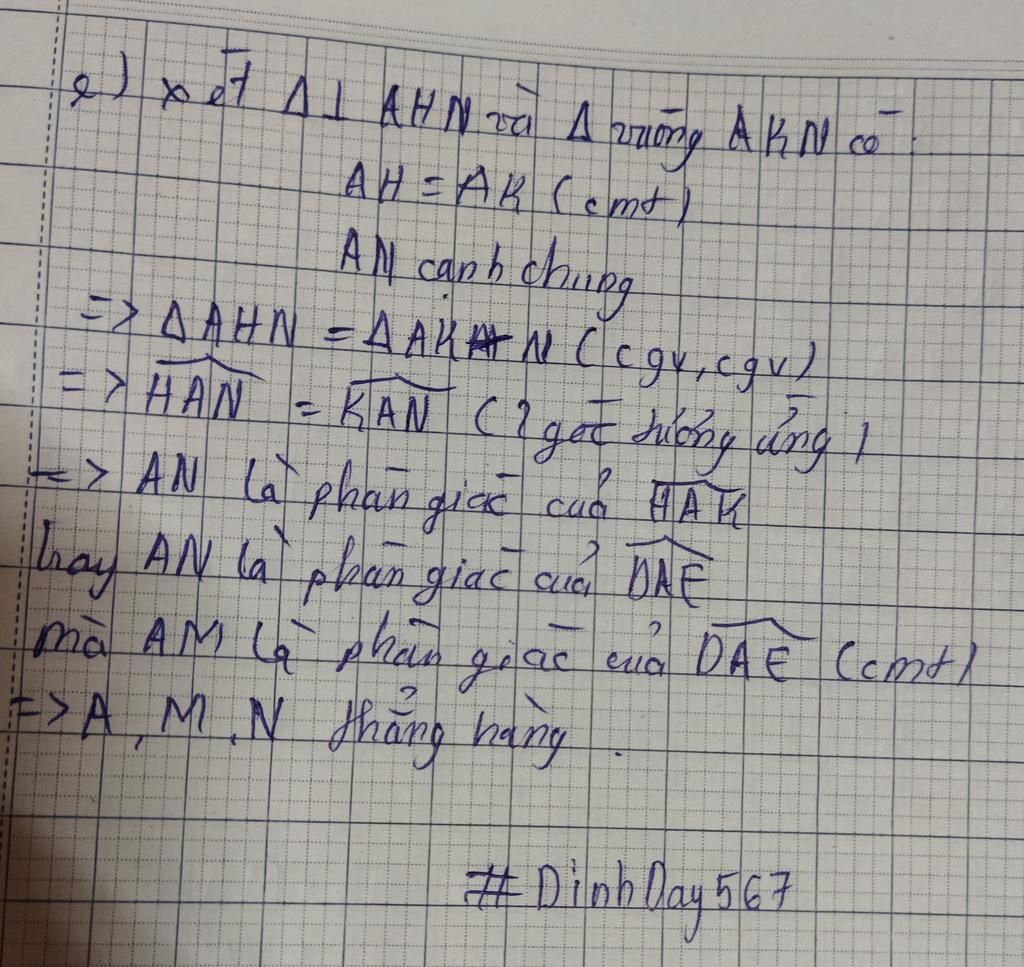 e) xét Δ⊥ AHN và Δ vuông AKN có:
AH = AK (cmt)
AN cạnh chung
=> ΔAHN = ΔAKN (cgv, cgv)
=> HAN = KAN (2 góc tương ứng)
=> AN là phân giác của HAK
hay AN là phân giác của DAE
mà AM là phân giác của DAE (cmt)
=> A, M, N thẳng hàng.
#DinhDay567